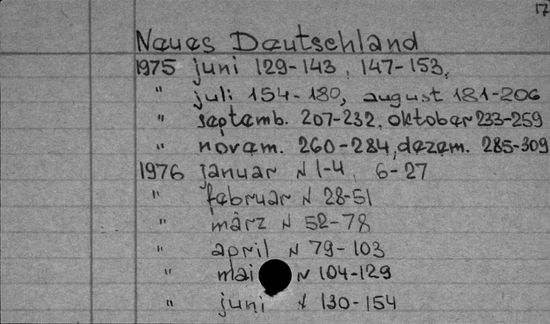 17
Neues Deutschland
1975 juni 129-143, 147-153,
" juli 154-180, august 181-206
" septemb. 207-232, oktober 233-259
" novem. 260-284, dezem. 285-309
1976 januar N 1-4, 6-27
" februar N 28-51
" märz N 52-78
" april N 79-103
" mai N 104-129
" juni N 130-154